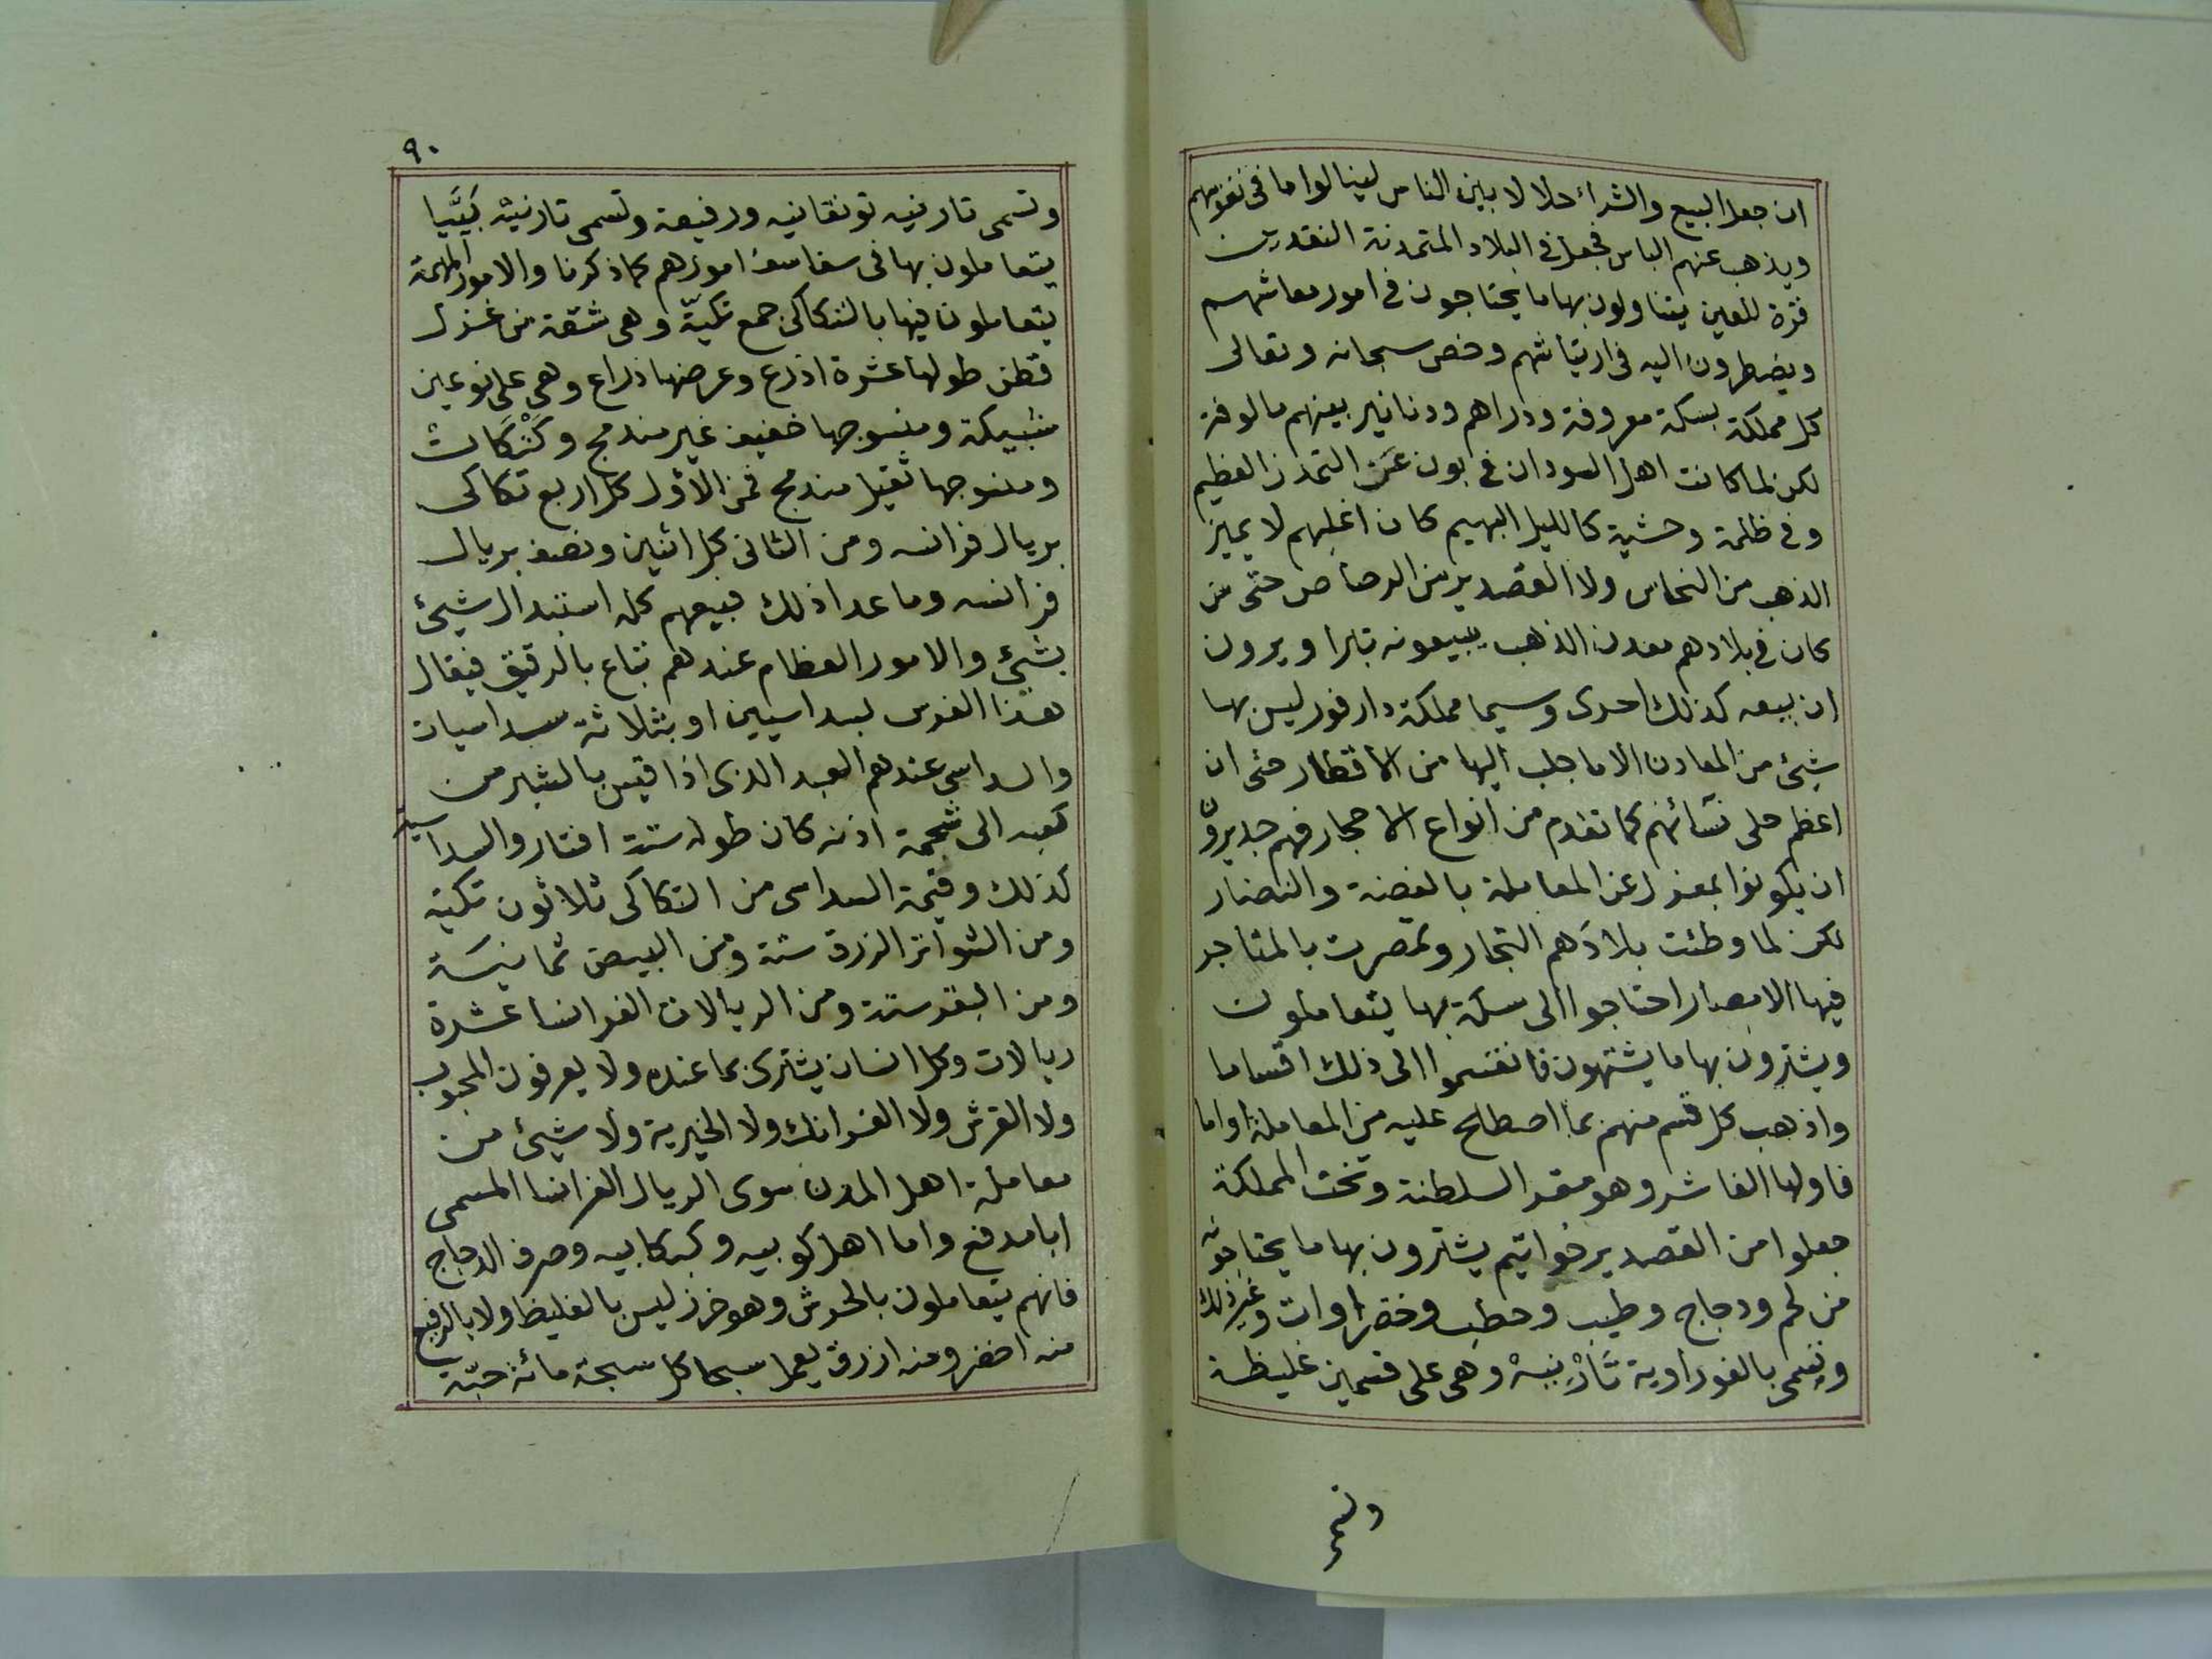 ان جعل البيع والشراء حلالا بين الناس لينالوا ما فى نفوسهم
ويذهب عنهم الباس فجعل فى البلاد المتمدنة النقدين
قرة للعين يتناولون بها ما يحتاجون فى امور معاشهم
ويضطرون اليه فى ارتياشهم وخص سبحانه وتعالى
كل مملكة بسكة معروفة ودراهم ودنانير بينهم مالوفة
لكن لما كانت اهل السودان فى بون عن التمدن العظيم
وفى ظلمة وحشية كالليل البهيم كان اغلبهم لا يميز
الذهب من النحاس ولا القصدير من الرصاص حتى من
كان فى بلادهم معدن الذهب يبيعونه تبرا ويرون
ان بيعه كذلك احرى وسيما مملكة دارفور ليس بها
شيئ من المعادن الا ما جلب اليها من الاقطار حتى ان
اعظم حلى نسائهم كما تقدم من انواع الاحجار فهم جديرون
ان يكونوا بمعزل عن المعاملة بالفضة والنضار
لكن لما وطئت بلادهم التجار وتمصرت بالمتاجر
فيها الامصار احتاجوا الى سكة بها يتعاملون
ويشترون بها ما يشتهون فانقسموا الى ذلك اقساما
واذهب كل قسم منهم بما اصطلح عليه من المعاملة اواما
فاولها الفاشر وهو مقر السلطنة وتخت المملكة
جعلوا من القصدير خواتيم يشترون بها ما يحتاجونه
من لحم ودجاج وطيب وحطب وخضراوات وغير ذلك
وتسمى بالفوراوية تَارْنِيهْ وهى على قسمين غليظة
وتسمى
٩٠
وتسمى تارنيه تونقانيه ورفيعة وتسمى تارنيه بَيَّيا
يتعاملون بها فى سفاسف امورهم كما ذكرنا والامور المهمة
يتعاملون فيها بالتكاكى جمع تكيّة وهى شقة من غزل
قطن طولها عشرة اذرع وعرضها ذراع وهى على نوعين
شبيكة ومنسوجها خفيف غير مندمج وكَتْكَات
ومنسوجها ثقيل مندمج فمن الأول كل اربع تكاكى
بريال فرانسه ومن الثانى كل اثنين ونصف بريال
فرانسه وما عدا ذلك فبيعهم كله استبدال شيئ
بشيئ والامور العظام عندهم تباع بالرقيق فيقال
هذا الفرس بسداسيين او بثلاثة سداسيات
والسداسى عندهم العبد الذى اذا قيس بالشبر من
كعبه الى شحمة اذنه كان طوله ستة افتار والسداسية
كذلك وقيمة السداسى من التكاكى ثلاثون تكيه
ومن الشواتر الزرق ستة ومن البيض ثمانية
ومن البقر ستة ومن الريالات الفرانسا عشرة
ريالات وكل انسان يشترى بما عنده ولا يعرفون المحبوب
ولا القرش ولا الفرانك ولا الخيرية ولا شيئ من
معاملة اهل المدن سوى الريال الفرانسا المسمى
ابا مدفع واما اهل كوبيه وكبكابيه وصرف الدجاج
فانهم يتعاملون بالحرش وهو خرز ليس بالغليظ ولا بالرفيع
منه اخضر ومنه ازرق يعمل سبحا كل سبحة مائة حبّة